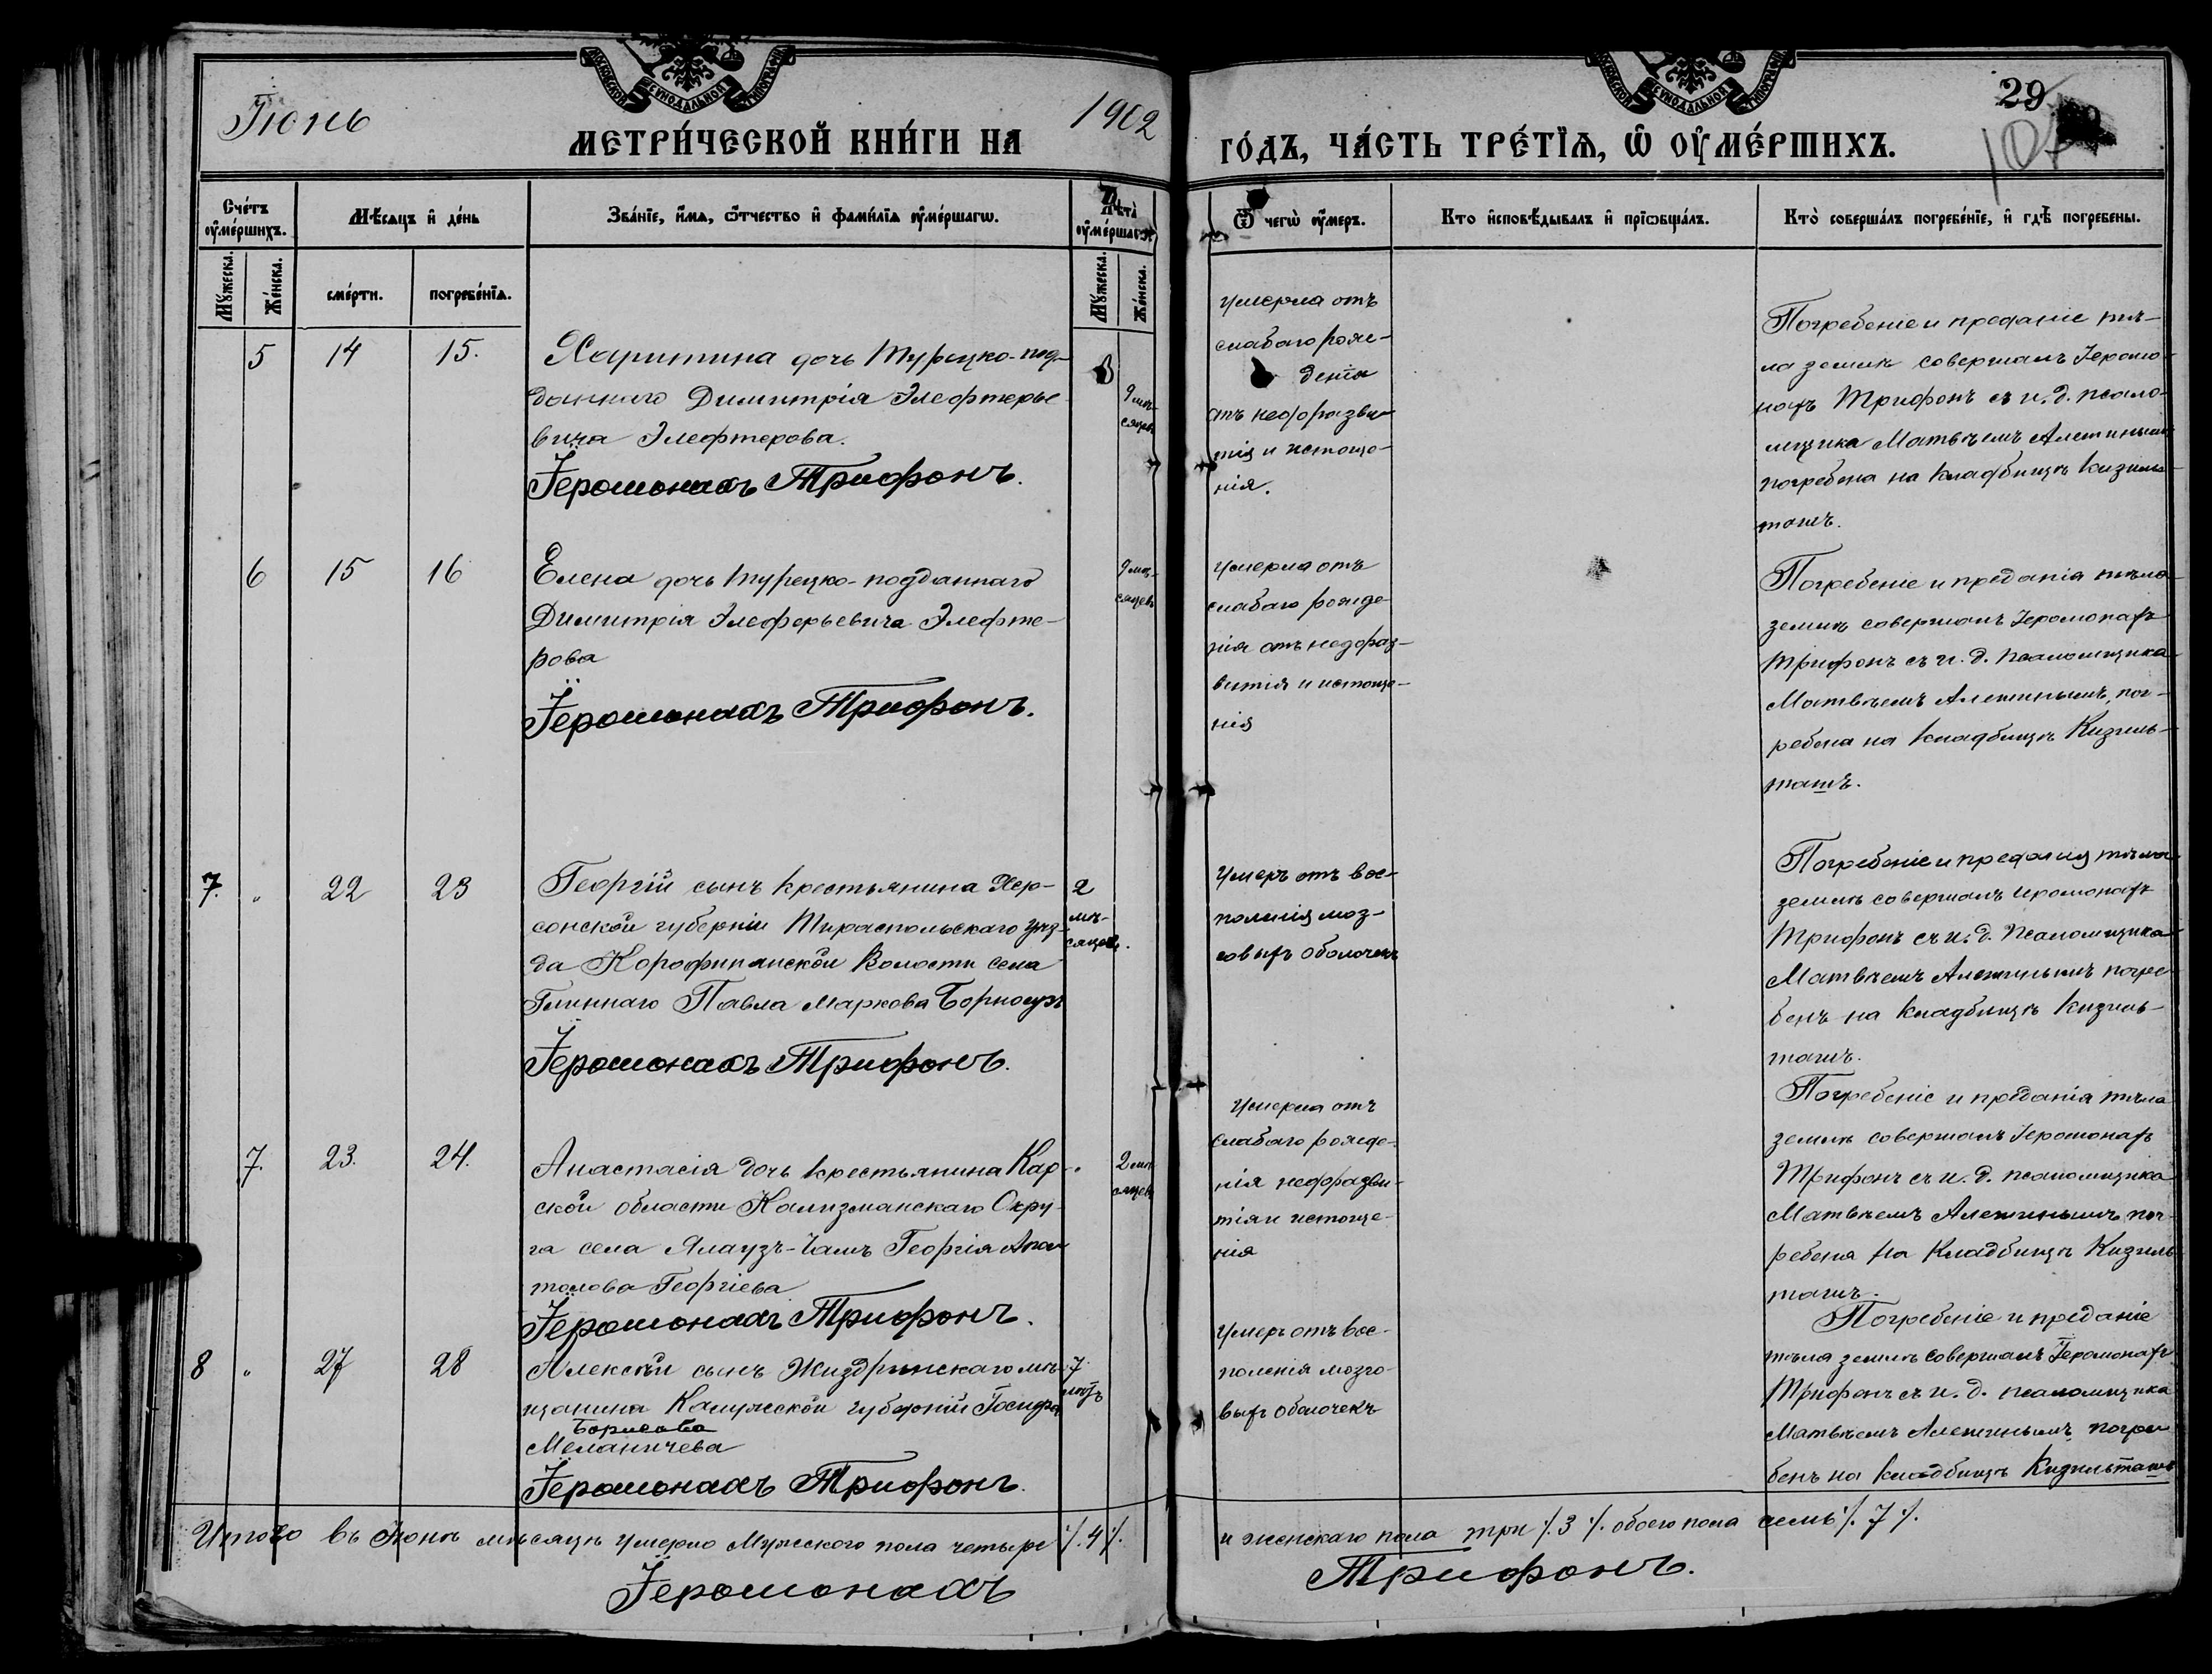 МОСКОВСКОЙ СѴНОДАЛЬНОЙ ТИПОГРАФІИ
МОСКОВСКОЙ СѴНОДАЛЬНОЙ ТИПОГРАФІИ
Іюнь
1902
29
МЕТРИ́ЧЕСКОЙ КНИ́ГИ НА
ГО́ДЪ, ЧА́СТЬ ТРЕ́ТІѦ, Ѡ҆ ОУ҆МЕ́РШИХЪ.
Сче́тъ оу҆ме́ршихъ.
Мѣ́сяцъ и҆ де́нь
Зва́нїе, и҆́мѧ, ѻ҆́тчество и҆ фами́лїѧ оу҆ме́ршагѡ.
Лѣ̀та оу҆ме́ршагѡ.
Ѿ чегѡ̀ оу҆́меръ.
Кто̀ и҆сповѣ́дывалъ и҆ прїѡбща́лъ.
Кто̀ соверша́лъ погребе́нїе, и҆ гдѣ̀ погребены.
Мꙋ́жеска.
Же́нска.
сме́рти.
погребе́нїѧ.
Мꙋ́жеска.
Же́нска.
5 14 15.
Харитина дочь Турецко-под-
даннаго Димитрія Элефтерье
вича Элефтерова.
Іеромонахъ Трифонъ.
9 мѣ-
сяцевъ
умерла отъ
слабаго рож-
денія
отъ недоразви-
тія и истоще-
нія.
Погребеніе и преданіе тѣ-
ла землѣ совершалъ Іеромо-
нахъ Трифонъ съ и. д. псало-
мщика Матвѣемъ Алешинымъ
погребена на кладбищѣ Кизиль-
ташъ.
6 15 16
Елена дочь турецко-подданнаго
Димитрія Элеферьевича Элефте-
рова
Іеромонахъ Трифонъ.
9 мѣ-
сяцевъ
умерла отъ
слабаго рожде-
нія отъ недораз-
витія и истоще-
нія
Погребеніе и преданія тѣла
землѣ совершалъ Іеромонахъ
Трифонъ съ и. д. псаломщика
Матвѣемъ Алешинымъ, пог-
ребена на кладбищѣ Кизиль-
ташъ.
7. " 22 23
Георгій сынъ крестьянина Хер-
сонской губерніи Тираспольскаго уѣз-
да Волости села
Глиннаго Павла Маркова
Іеромонахъ Трифонъ.
2
мѣ-
сяцевъ.
умеръ отъ вос-
поленія моз-
говыхъ оболочекъ
Погребеніе и преданія тѣла
землѣ совершалъ иромонахъ
Трифонъ съ и. д. Псаломщика
Матвѣемъ Алешинымъ погре-
бенъ на кладбищѣ Кизиль-
ташъ.
7. 23. 24.
Анастасія дочь крестьянина Кар-
ской области Кагизманскаго Окру-
га села Ялаузъ-Чамъ Георгія
Георгіева
Іеромонахъ Трифонъ.
2 мѣ-
сяцевъ
умерла отъ
слабаго рожде-
нія недоразви-
тія и истоще-
нія
Погребеніе и преданія тѣла
землѣ совершалъ Іеромонахъ
Трифонъ съ и. д. псаломщика
Матвѣемъ Алешинымъ, пог-
ребена на Кладбищѣ Кизиль-
ташъ.
8 " 27 28
Алексѣй сынъ Жиздринскаго мѣ-
щанина Калужской губерній
Борисова
Меланичева
Іеромонахъ Трифонъ.
7
лѣтъ
умеръ отъ вос-
поленія мозго-
выхъ оболочекъ
Погребеніе и преданіе
тѣла землѣ совершалъ Іеромонахъ
Трифонъ съ и. д. псаломщика
Матвѣемъ Алешинымъ, погре-
бенъ на кладбищѣ Кизильташъ
Итого въ Іюнѣ мѣсяцѣ умерло Мужеского пола четыре /. 4 /. и женскаго пола три /. 3 /. обоего пола семь /. 7 /.
Іеромонахъ Трифонъ.